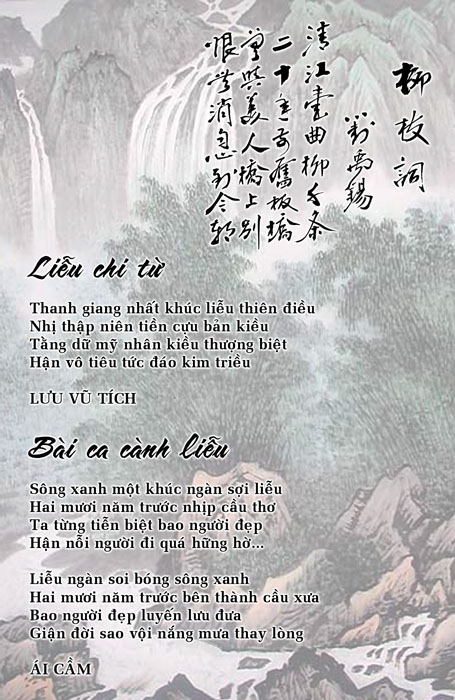 柳枝詞
劉禹錫
清江壹曲柳千条
二十年前舊板橋
曾與美人橋上別
恨無消息到今朝
Liễu chi từ
Thanh giang nhất khúc liễu thiên điều
Nhị thập niên tiền cựu bản kiều
Tằng dữ mỹ nhân kiều thượng biệt
Hận vô tiêu tức đáo kim triều
LƯU VŨ TÍCH
Bài ca cành liễu
Sông xanh một khúc ngàn sợi liễu
Hai mươi năm trước nhịp cầu thơ
Ta từng tiễn biệt bao người đẹp
Hận nỗi người đi quá hững hờ...
Liễu ngàn soi bóng sông xanh
Hai mươi năm trước bên thành cầu xưa
Bao người đẹp luyến lưu đưa
Giận đời sao vội nắng mưa thay lòng
ÁI CẦM